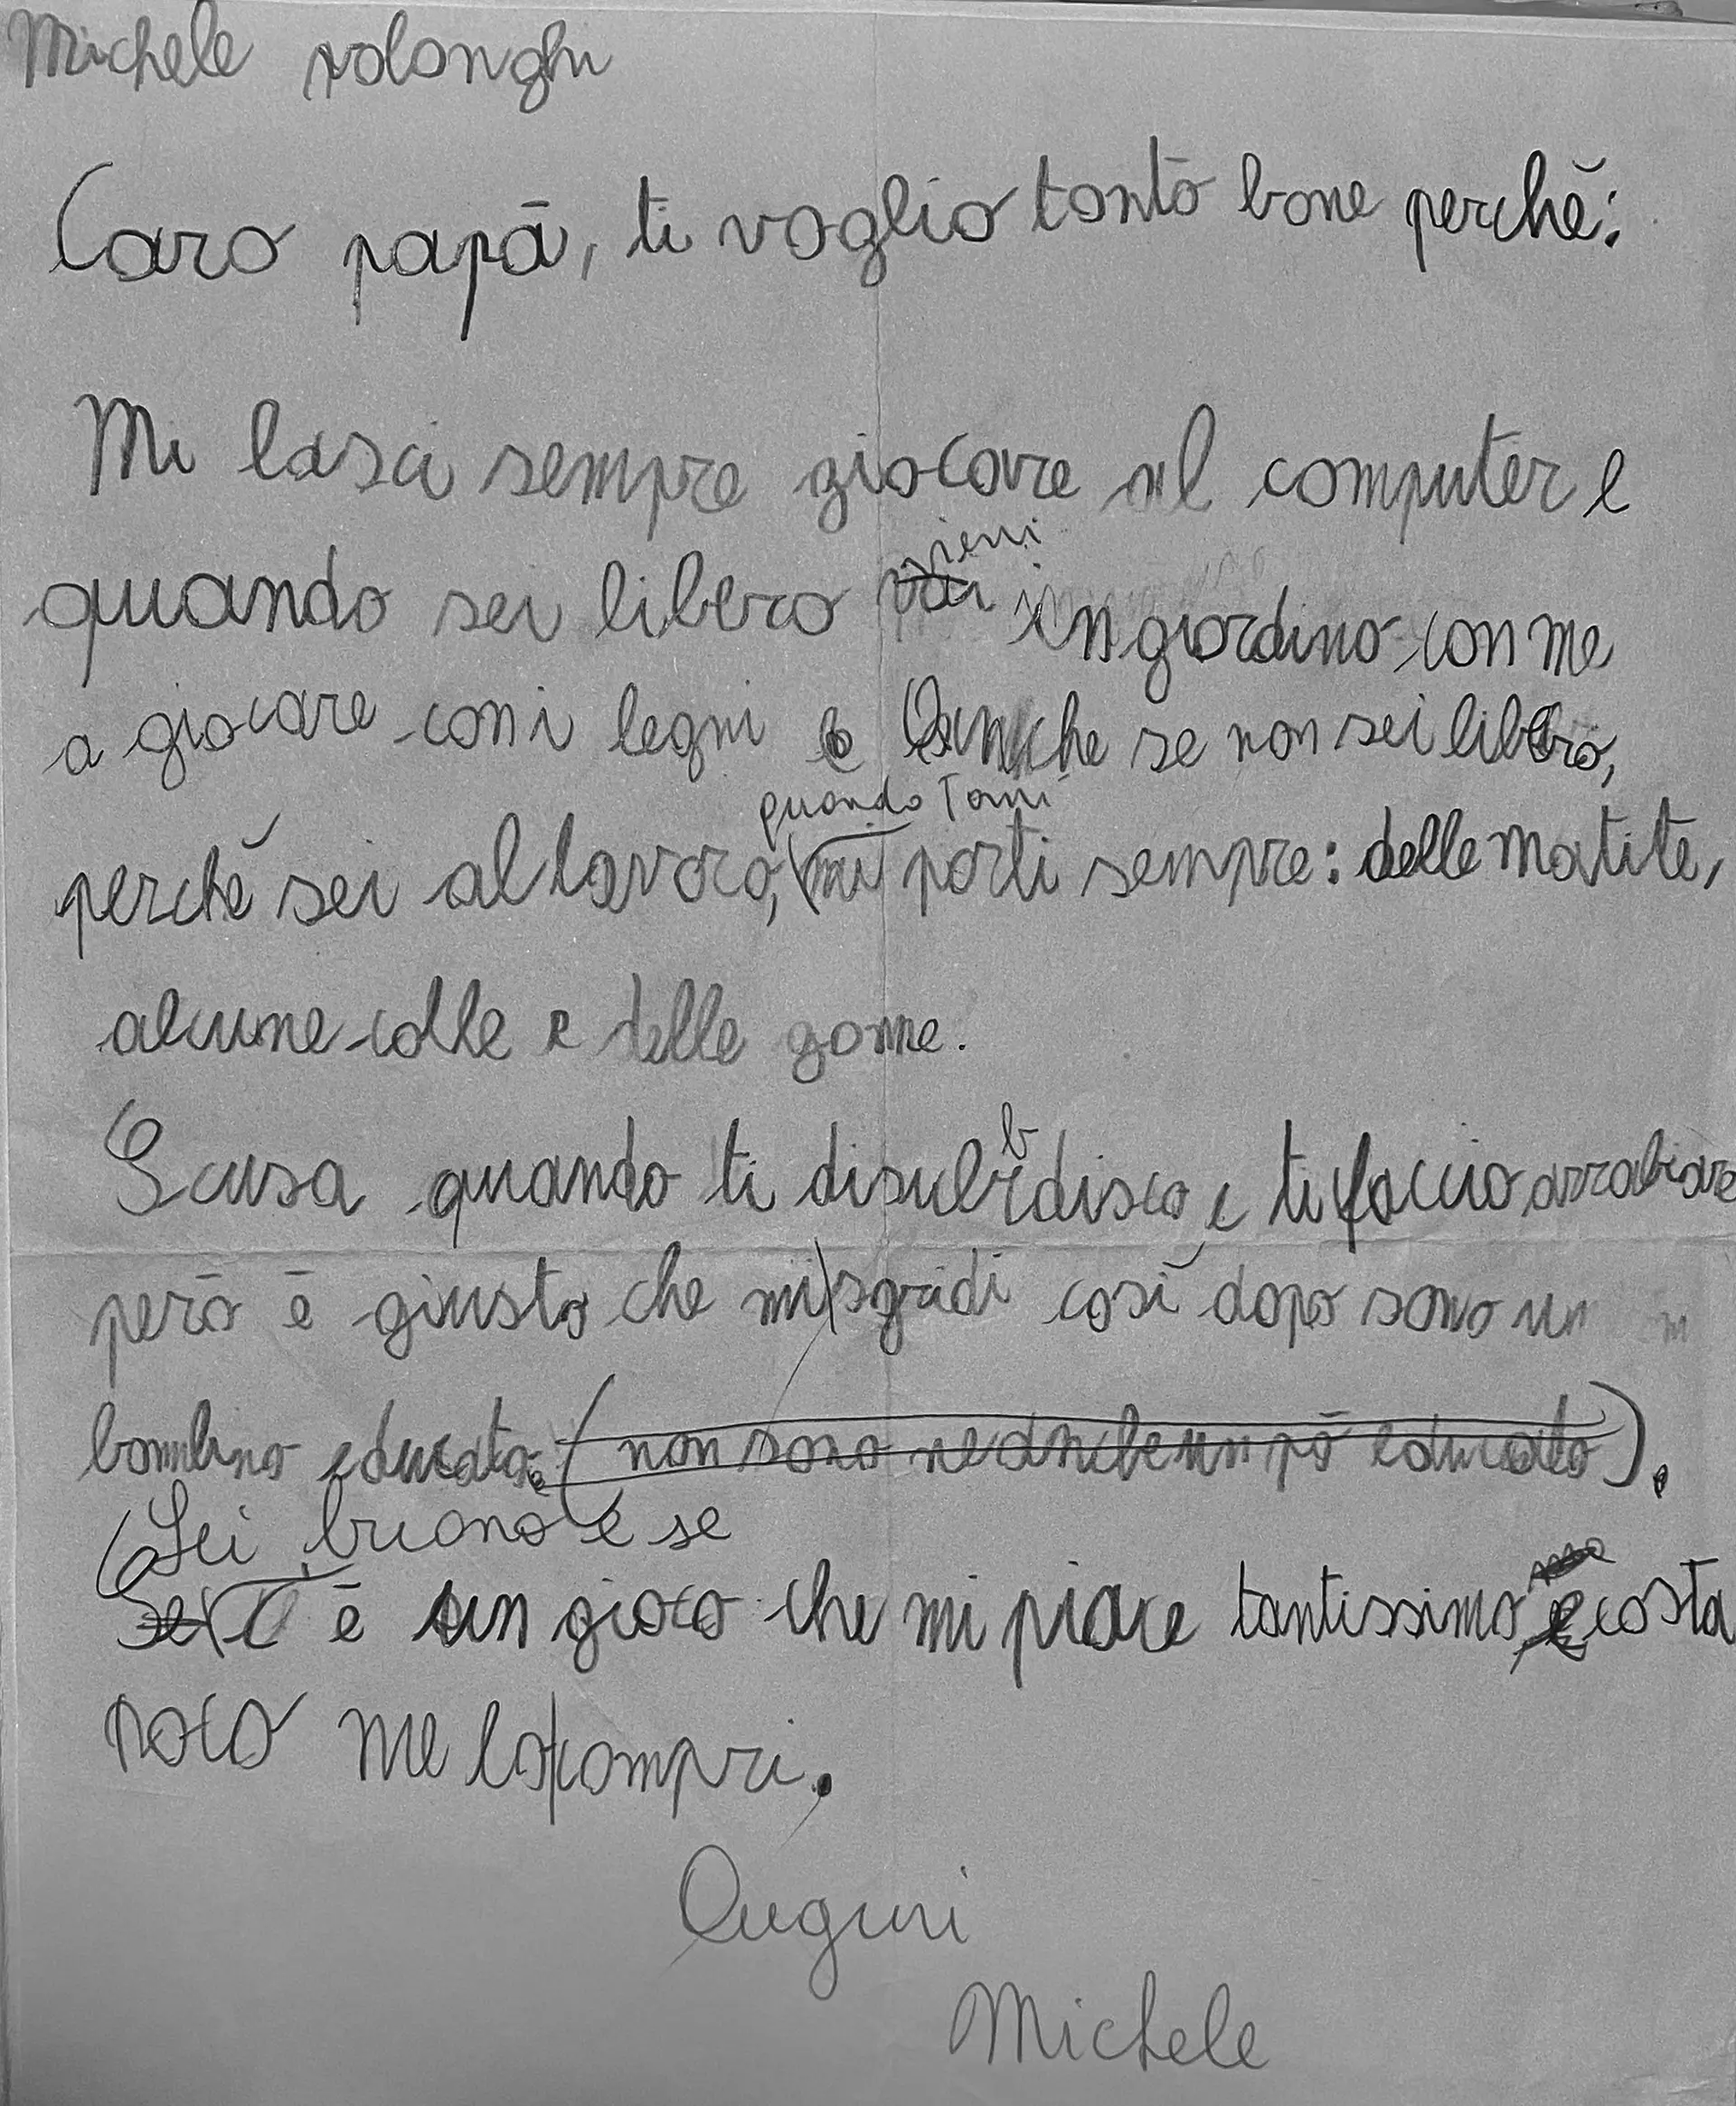 Michele rolonghi
Caro papà, ti voglio tanto bone perchè:
Mi lasci sempre giocare al computer e
vieni
quando sei libero vai in giardino con me
a giocare con i legni e Anche se non sei libero,
quando torni
perchè sei al lavoro, mi porti sempre: delle matite,
alcune colle e delle gomme.
b
Scusa quando ti disubrdisco e ti faccio arrabiare
però è giusto che mi sgridi così dopo sono un
bambino educato. (non sono neanche un pò educato).
Sei buono e se
Se c'è un gioco che mi piace tantissimo e costa
poco me lo compri.
Auguri
Michele